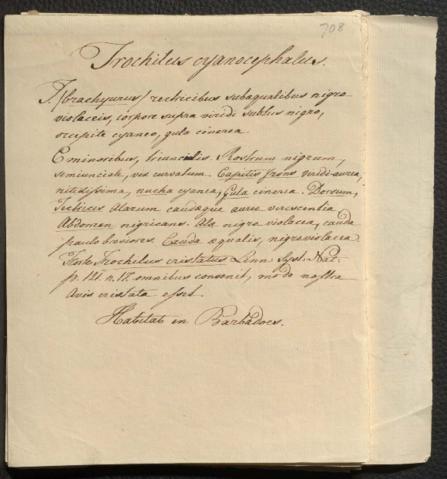 708
Trochilus cyanocephalus.
T. (brachyurus) rectricibus subaqualibus nigro
violaceis, corpore supra viridi subtus nigro,
occipite cyaneo, gula cinerea.
E minoribus, triuncialis. Rostrum nigrum,
semiunciale, vix curvatum. Capitis frons viridi-aurea,
nitidissima, nucha cyanea, Gula cinerea. Dorsum,
Tectrices alarum caudaque aureo virescentia
Abdomen nigricans. Ala nigro violacea, cauda
paulo breviores. Cauda aqualis, nigroviolacea.
Forte Trochilus cristatus Linn. Syst. Nat.
p. 121 n. 17. omnibus convenit, modo nostra
avis cristata esset.
Habitat in Barbadoes.